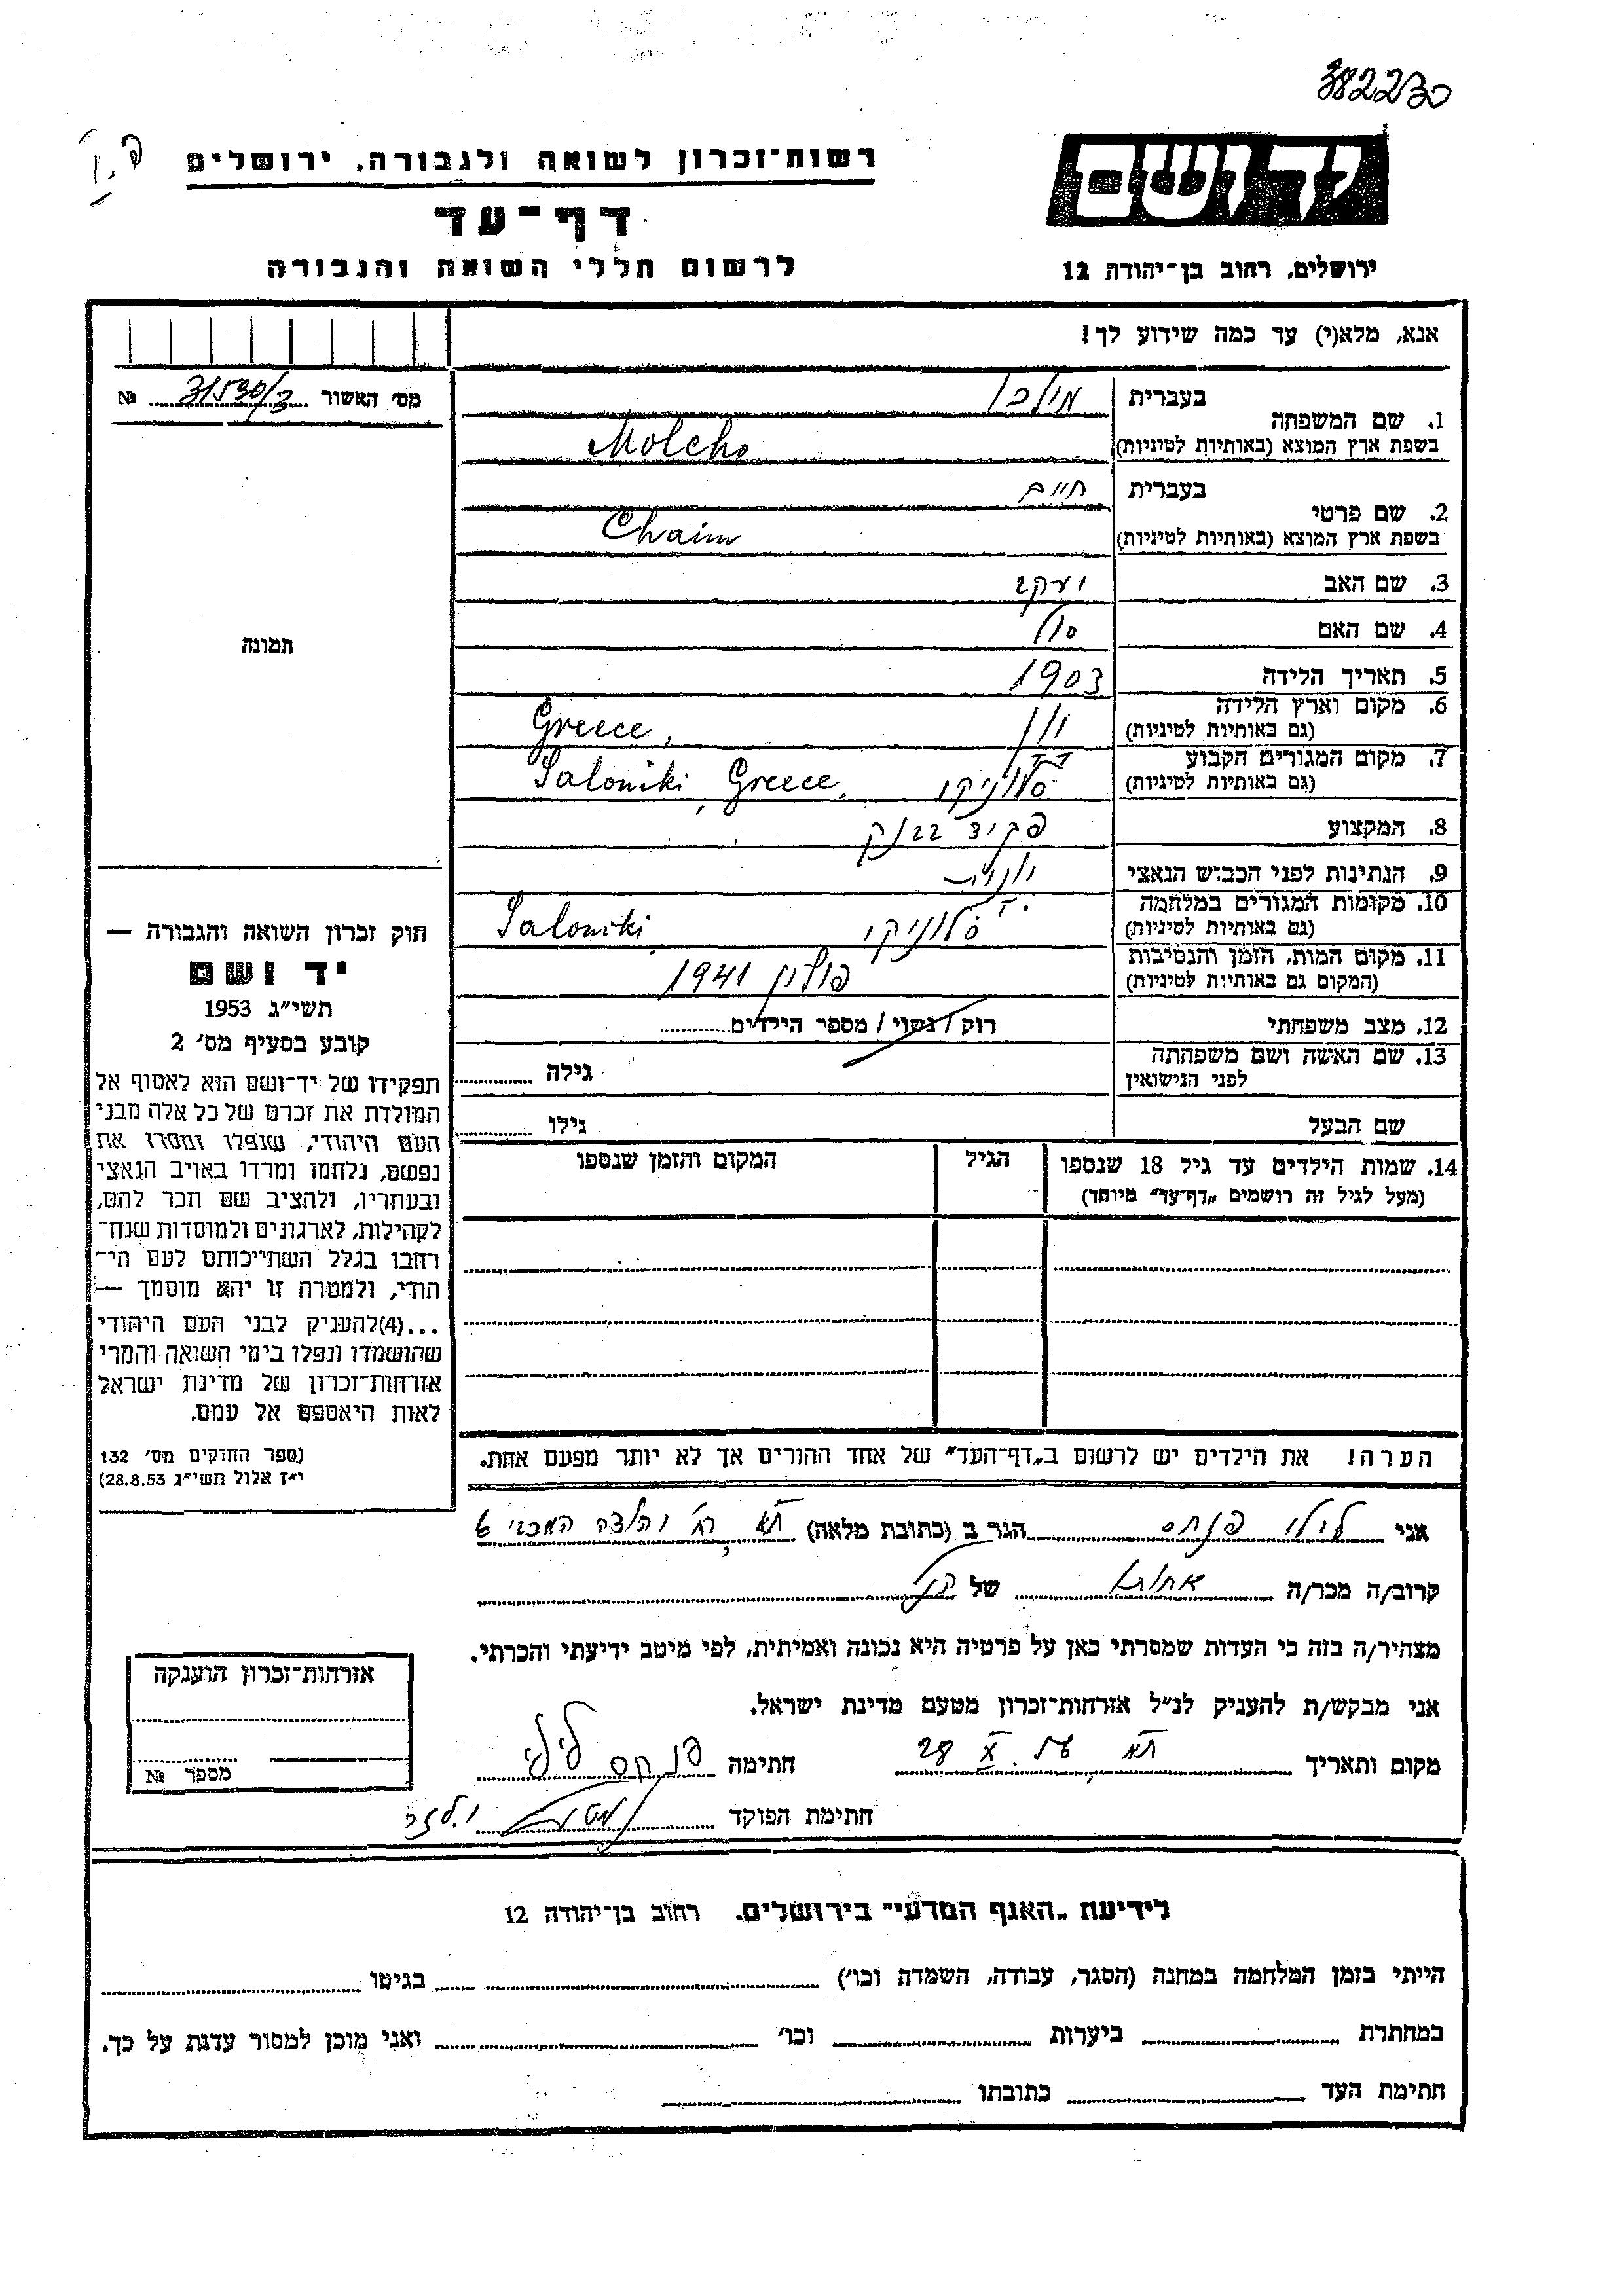 382230
יד ושם
רשות־זכרון לשואה ולגבורה, ירושלים
דף־עד
לרשום חללי השואה והגבורה
ירושלים, רחוב בן־יהודה 12
אנא, מלא(י) עד כמה שידוע לך!
מס׳ האשור 31530/3 №
תמונה
1. שם המשפחה בעברית מולכו
בשפת ארץ המוצא (באותיות לטיניות) Molcho
2. שם פרטי בעברית חיים
בשפת ארץ המוצא (באותיות לטיניות) Chaim
3. שם האב יעקב
4. שם האם
5. תאריך הלידה 1903
6. מקום וארץ הלידה יון Greece,
(גם באותיות לטיניות)
7. מקום המגורים הקבוע סלוניקי Saloniki, Greece,
(גם באותיות לטיניות)
8. המקצוע פקיד בבנק
9. הנתינות לפני הכבוש הנאצי
10. מקומות המגורים במלחמה סלוניקי Saloniki,
(גם באותיות לטיניות)
11. מקום המות, הזמן והנסיבות פולין 1941
(המקום גם באותיות לטיניות)
12. מצב משפחתי רוק / נשוי / מספר הילדים
13. שם האשה ושם משפחתה גילה
לפני הנישואין
שם הבעל גילו
14. שמות הילדים עד גיל 18 שנספו הגיל המקום והזמן שנספו
(מעל לגיל זה רושמים „דף־עד״ מיוחד)
הערה! את הילדים יש לרשום ב„דף־העד״ של אחד ההורים אך לא יותר מפעם אחת.
חוק זכרון השואה והגבורה —
יד ושם
תשי״ג 1953
קובע בסעיף מס׳ 2
תפקידו של יד־ושם הוא לאסוף אל
המולדת את זכרם של כל אלה מבני
העם היהודי, שנפלו ומסרו את
נפשם, נלחמו ומרדו באויב הנאצי
ובעוזריו, ולהציב שם וזכר להם,
לקהילות, לארגונים ולמוסדות שנח־
רבו בגלל השתייכותם לעם הי־
הודי, ולמטרה זו יהא מוסמך —
...(4)להעניק לבני העם היהודי
שהושמדו ונפלו בימי השואה והמרי
אזרחות־זכרון של מדינת ישראל
לאות היאספם אל עמם.
(ספר החוקים מס׳ 132
י״ז אלול תשי״ג 28.8.53)
אני לילי פנחס הגר ב (כתובת מלאה) ת״א רח׳
קרוב/ה מכר/ה אחות של
מצהיר/ה בזה כי העדות שמסרתי כאן על פרטיה היא נכונה ואמיתית, לפי מיטב ידיעתי והכרתי.
אני מבקש/ת להעניק לנ״ל אזרחות־זכרון מטעם מדינת ישראל.
מקום ותאריך ת״א 28 X חתימה פנחס לילי
חתימת הפוקד
אזרחות־זכרון הוענקה
מספר №
לידיעת „האגף המדעי״ בירושלים. רחוב בן־יהודה 12
הייתי בזמן המלחמה במחנה (הסגר, עבודה, השמדה וכו׳) בגיטו
במחתרת ביערות וכו׳ ואני מוכן למסור עדות על כך.
חתימת העד כתובתו